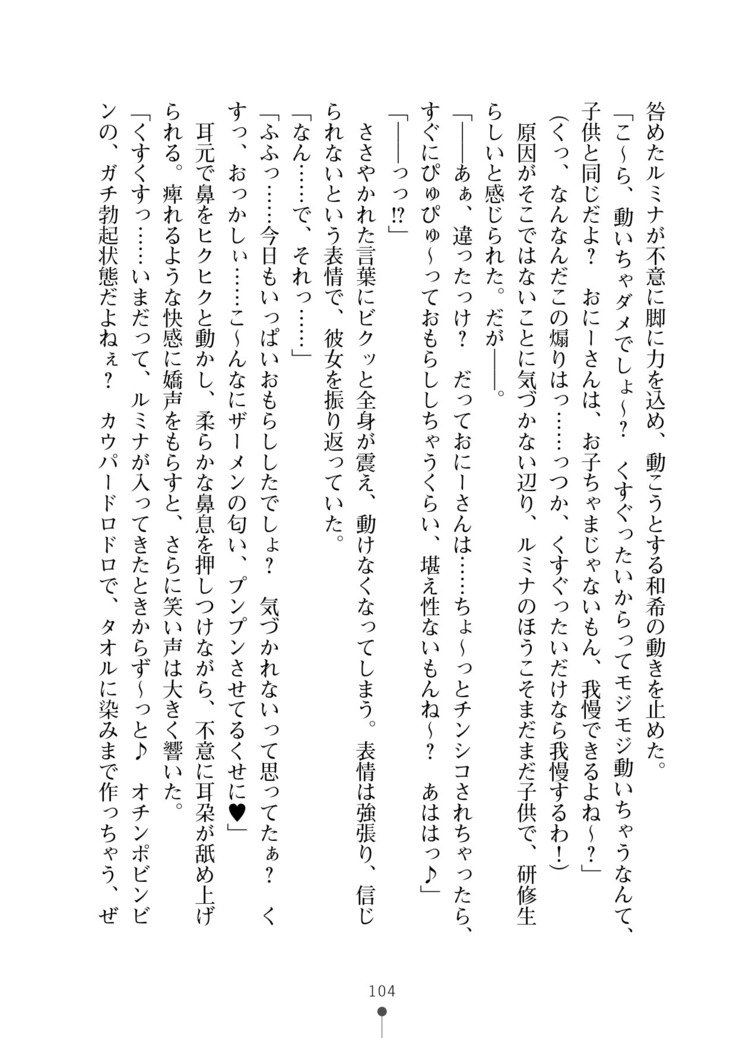 咎めたルミナが不意に脚に力を込め、動こうとする和希の動きを止めた。
「こ～ら、動いちゃダメでしょ～？　くすぐったいからってモジモジ動いちゃうなんて、
子供と同じだよ？　おにーさんは、お子ちゃまじゃないもん、我慢できるよね～？」
（くっ、なんなんだこの煽りはっ……っつか、くすぐったいだけなら我慢するわ！）
　原因がそこではないことに気づかない辺り、ルミナのほうこそまだまだ子供で、研修生
らしいと感じられた。だが――。
「――あぁ、違ったっけ？　だっておにーさんは……ちょ～っとチンシコされちゃったら、
すぐにぴゅぴゅ～っておもらししちゃうくらい、堪え性ないもんね～？　あははっ♪」
「――っっ!?」
　ささやかれた言葉にビクッと全身が震え、動けなくなってしまう。表情は強張り、信じ
られないという表情で、彼女を振り返っていた。
「なん……で、それっ……」
「ふふっ……今日もいっぱいおもらししたでしょ？　気づかれないって思ってたぁ？　く
すっ、おっかしぃ……こ～んなにザーメンの匂い、プンプンさせてるくせに♥」
　耳元で鼻をヒクヒクと動かし、柔らかな鼻息を押しつけながら、不意に耳朶が舐め上げ
られる。痺れるような快感に嬌声をもらすと、さらに笑い声は大きく響いた。
「くすくすっ……いまだって、ルミナが入ってきたときからず～っと♪　オチンポビンビ
ンの、ガチ勃起状態だよねぇ？　カウパードロドロで、タオルに染みまで作っちゃう、ぜ
104